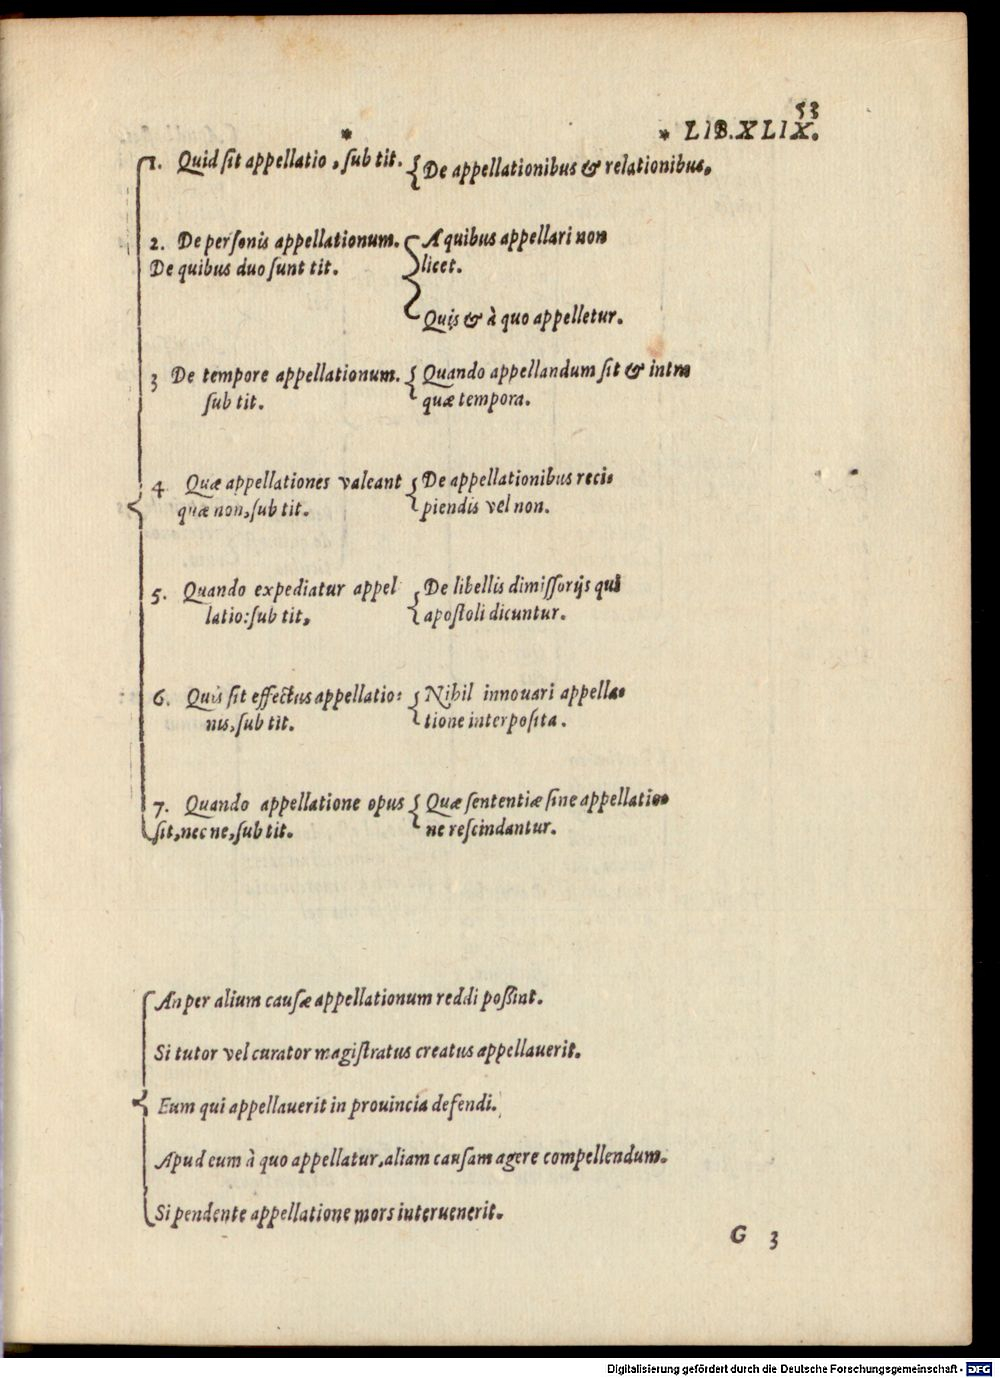 53
* * LIB.XLIX.
1. Quid sit appellatio, sub tit. { De appellationibus & relationibus.
2. De personis appellationum. { A quibus appellari non
De quibus duo sunt tit. licet.
Quis & à quo appelletur.
3 De tempore appellationum. { Quando appellandum sit & intra
sub tit. quæ tempora.
4 Quæ appellationes valeant { De appellationibus reci-
quæ non, sub tit. piendis vel non.
5. Quando expediatur appel { De libellis dimissorijs qui
latio: sub tit, apostoli dicuntur.
6. Quis sit effectus appellatio: { Nihil innouari appella-
nis, sub tit. tione interposita.
7. Quando appellatione opus { Quæ sententiæ sine appellatio-
sit, nec ne, sub tit. ne rescindantur.
An per alium causæ appellationum reddi possint.
Si tutor vel curator magistratus creatus appellauerit.
Eum qui appellauerit in prouincia defendi.
Apud eum à quo appellatur, aliam causam agere compellendum.
Si pendente appellatione mors interuenerit.
G 3
Digitalisierung gefördert durch die Deutsche Forschungsgemeinschaft - DFG